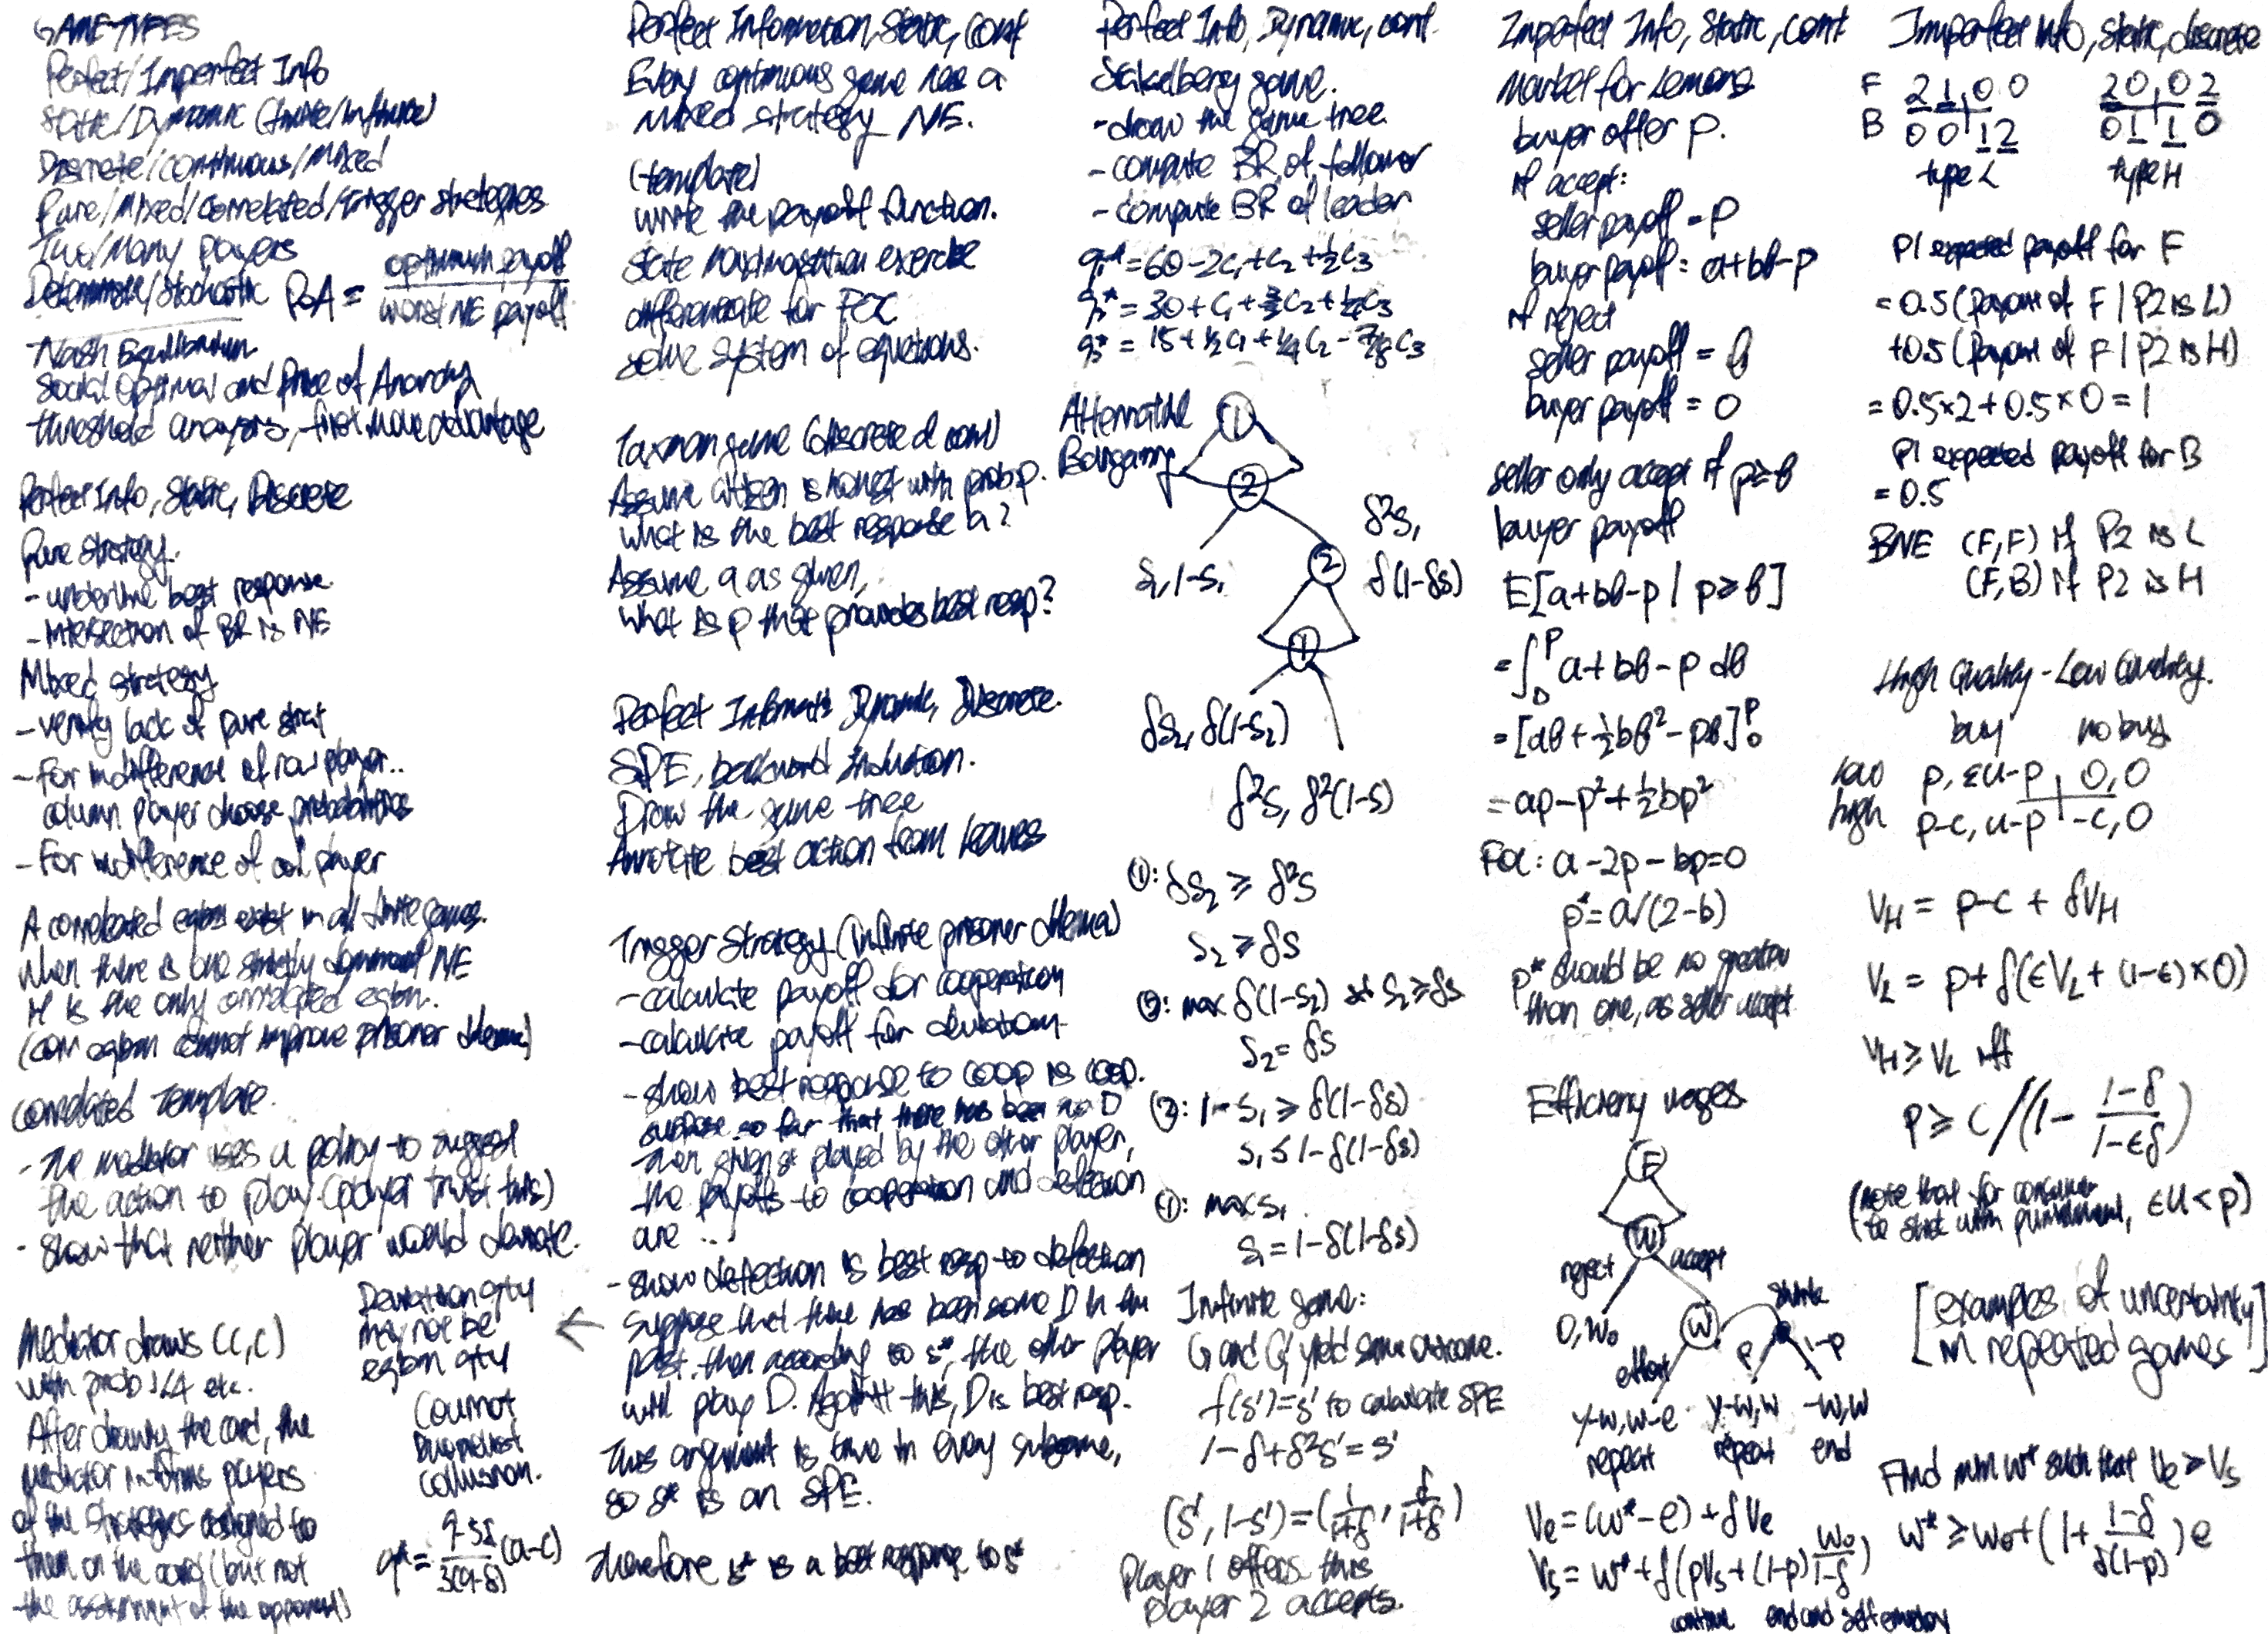 GAME TYPES
Perfect/Imperfect Info
Static/Dynamic (finite/infinite)
Discrete/continuous/Mixed
Pure/Mixed/correlated/trigger strategies
Two/Many players
Deterministic/Stochastic PoA = optimum payoff / worst NE payoff
Nash Equilibrium
Social Optimal and Price of Anarchy
threshold analysis, first move advantage
Perfect Info, Static, Discrete
Pure strategy.
- underline best response.
- Intersection of BR is NE
Mixed strategy
- verify lack of pure strat
- For indifference of row player..
column player choose probabilities
- For indifference of col player
A correlated eqbm exist in all finite games.
When there is one strictly dominant NE
it is the only correlated eqbm.
(corr eqbm cannot improve prisoner dilemma)
Correlated Template.
- The mediator uses a policy to suggest
the action to play (player trust this)
- Show that neither player would deviate.
Mediator draws (C,C)
with prob 1/4 etc.
After drawing the card, the
mediator informs players
of the strategies assigned to
them on the card (but not
the assignment of the opponent)
Deviation qty
may not be
eqbm qty
Cournot
Duopolist
Collusion.
q* = 9-5δ / 3(9-δ) (a-c)
Perfect Information, Static, Cont
Every continuous game has a
mixed strategy NE.
(template)
write the payoff function.
State maximisation exercise
differentiate for FOC
solve system of equations.
Taxman game (discrete & cont)
Assume citizen is honest with prob p.
what is the best response a?
Assume a as given,
what is p that provides best resp?
Perfect Informatn Dynamic, Discrete.
SPE, backward induction.
Draw the game tree
Annotate best action from leaves
Trigger Strategy (Infinite prisoner dilemma)
- calculate payoff for cooperation
- calculate payoff for deviation
- show best response to coop is coop.
suppose so far that there has been no D
then given s* played by the other player,
the payoffs to cooperation and defection
are ...
- show defection is best resp to defection
Suppose that there has been some D in the
past, then according to s*, the other player
will play D. Against this, D is best resp.
This argument is true in every subgame,
so s* is an SPE.
Therefore s* is a best response to s*
Perfect Info, Dynamic, cont.
Stakelberg game.
- draw the game tree.
- compute BR of follower
- compute BR of leader
q₁* = 60-2c₁+c₂+½c₃
q₂* = 30+c₁+3/2c₂+½c₃
q₃* = 15+½c₁+¼c₂-7/8c₃
Alternating
Bargaining
1
2
S₁, 1-S₁
2
δ²S,
δ(1-δS)
1
δS₂, δ(1-S₂)
δ²S, δ²(1-S)
①: δS₂ ≥ δ²S
S₂ ≥ δS
②: max δ(1-S₂) st S₂ ≥ δS
S₂ = δS
②: 1-S₁ ≥ δ(1-δS)
S₁ ≤ 1-δ(1-δS)
①: max S₁
S₁ = 1-δ(1-δS)
Infinite game:
G and G' yield same outcome.
f(s')=s' to calculate SPE
1-δ+δ²s'=s'
(s', 1-s') = (1/1+δ, δ/1+δ)
Player 1 offers this
player 2 accepts.
Imperfect Info, Static, Cont
Market for Lemons
buyer offer p.
if accept:
seller payoff = p
buyer payoff = a+bθ-p
if reject
seller payoff = θ
buyer payoff = 0
seller only accept if p≥θ
buyer payoff
E[a+bθ-p | p≥θ]
= ∫₀ᴾ a+bθ-p dθ
= [aθ+½bθ²-pθ]₀ᴾ
= ap-p²+½bp²
FOC: a-2p-bp=0
p*=a/(2-b)
p* should be no greater
than one, as seller accept
Efficiency wages
F
W
reject accept
0, w₀
W
shirk
effort
p 1-p
y-w, w-e y-w, w -w, w
repeat repeat end
Vₑ = (w*-e) + δVₑ
Vₛ = w* + δ(pVₛ+(1-p) w₀/1-δ)
continue end and self employ
Imperfect Info, Static, discrete
F 2 1, 0 0 2 0, 0 2
B 0 0 1 2 0 1 1 0
type L type H
P1 expected payoff for F
= 0.5 (Payout of F | P2 is L)
+0.5 (Payout of F | P2 is H)
= 0.5×2+0.5×0 = 1
P1 expected payoff for B
= 0.5
BNE (F,F) if P2 is L
(F,B) if P2 is H
High Quality - Low Quality.
buy no buy
low p, εu-p 0,0
high p-c, u-p -c, 0
V_H = p-c + δV_H
V_L = p+δ(εV_L+(1-ε)×0)
V_H ≥ V_L iff
p ≥ c/(1 - 1-δ/1-εδ)
(note that for consumer
to stick with punishment, εu<p)
[examples of uncertainty
in repeated games]
Find min w* such that Vₑ ≥ Vₛ
w* ≥ w₀+(1+ 1-δ/δ(1-p))e